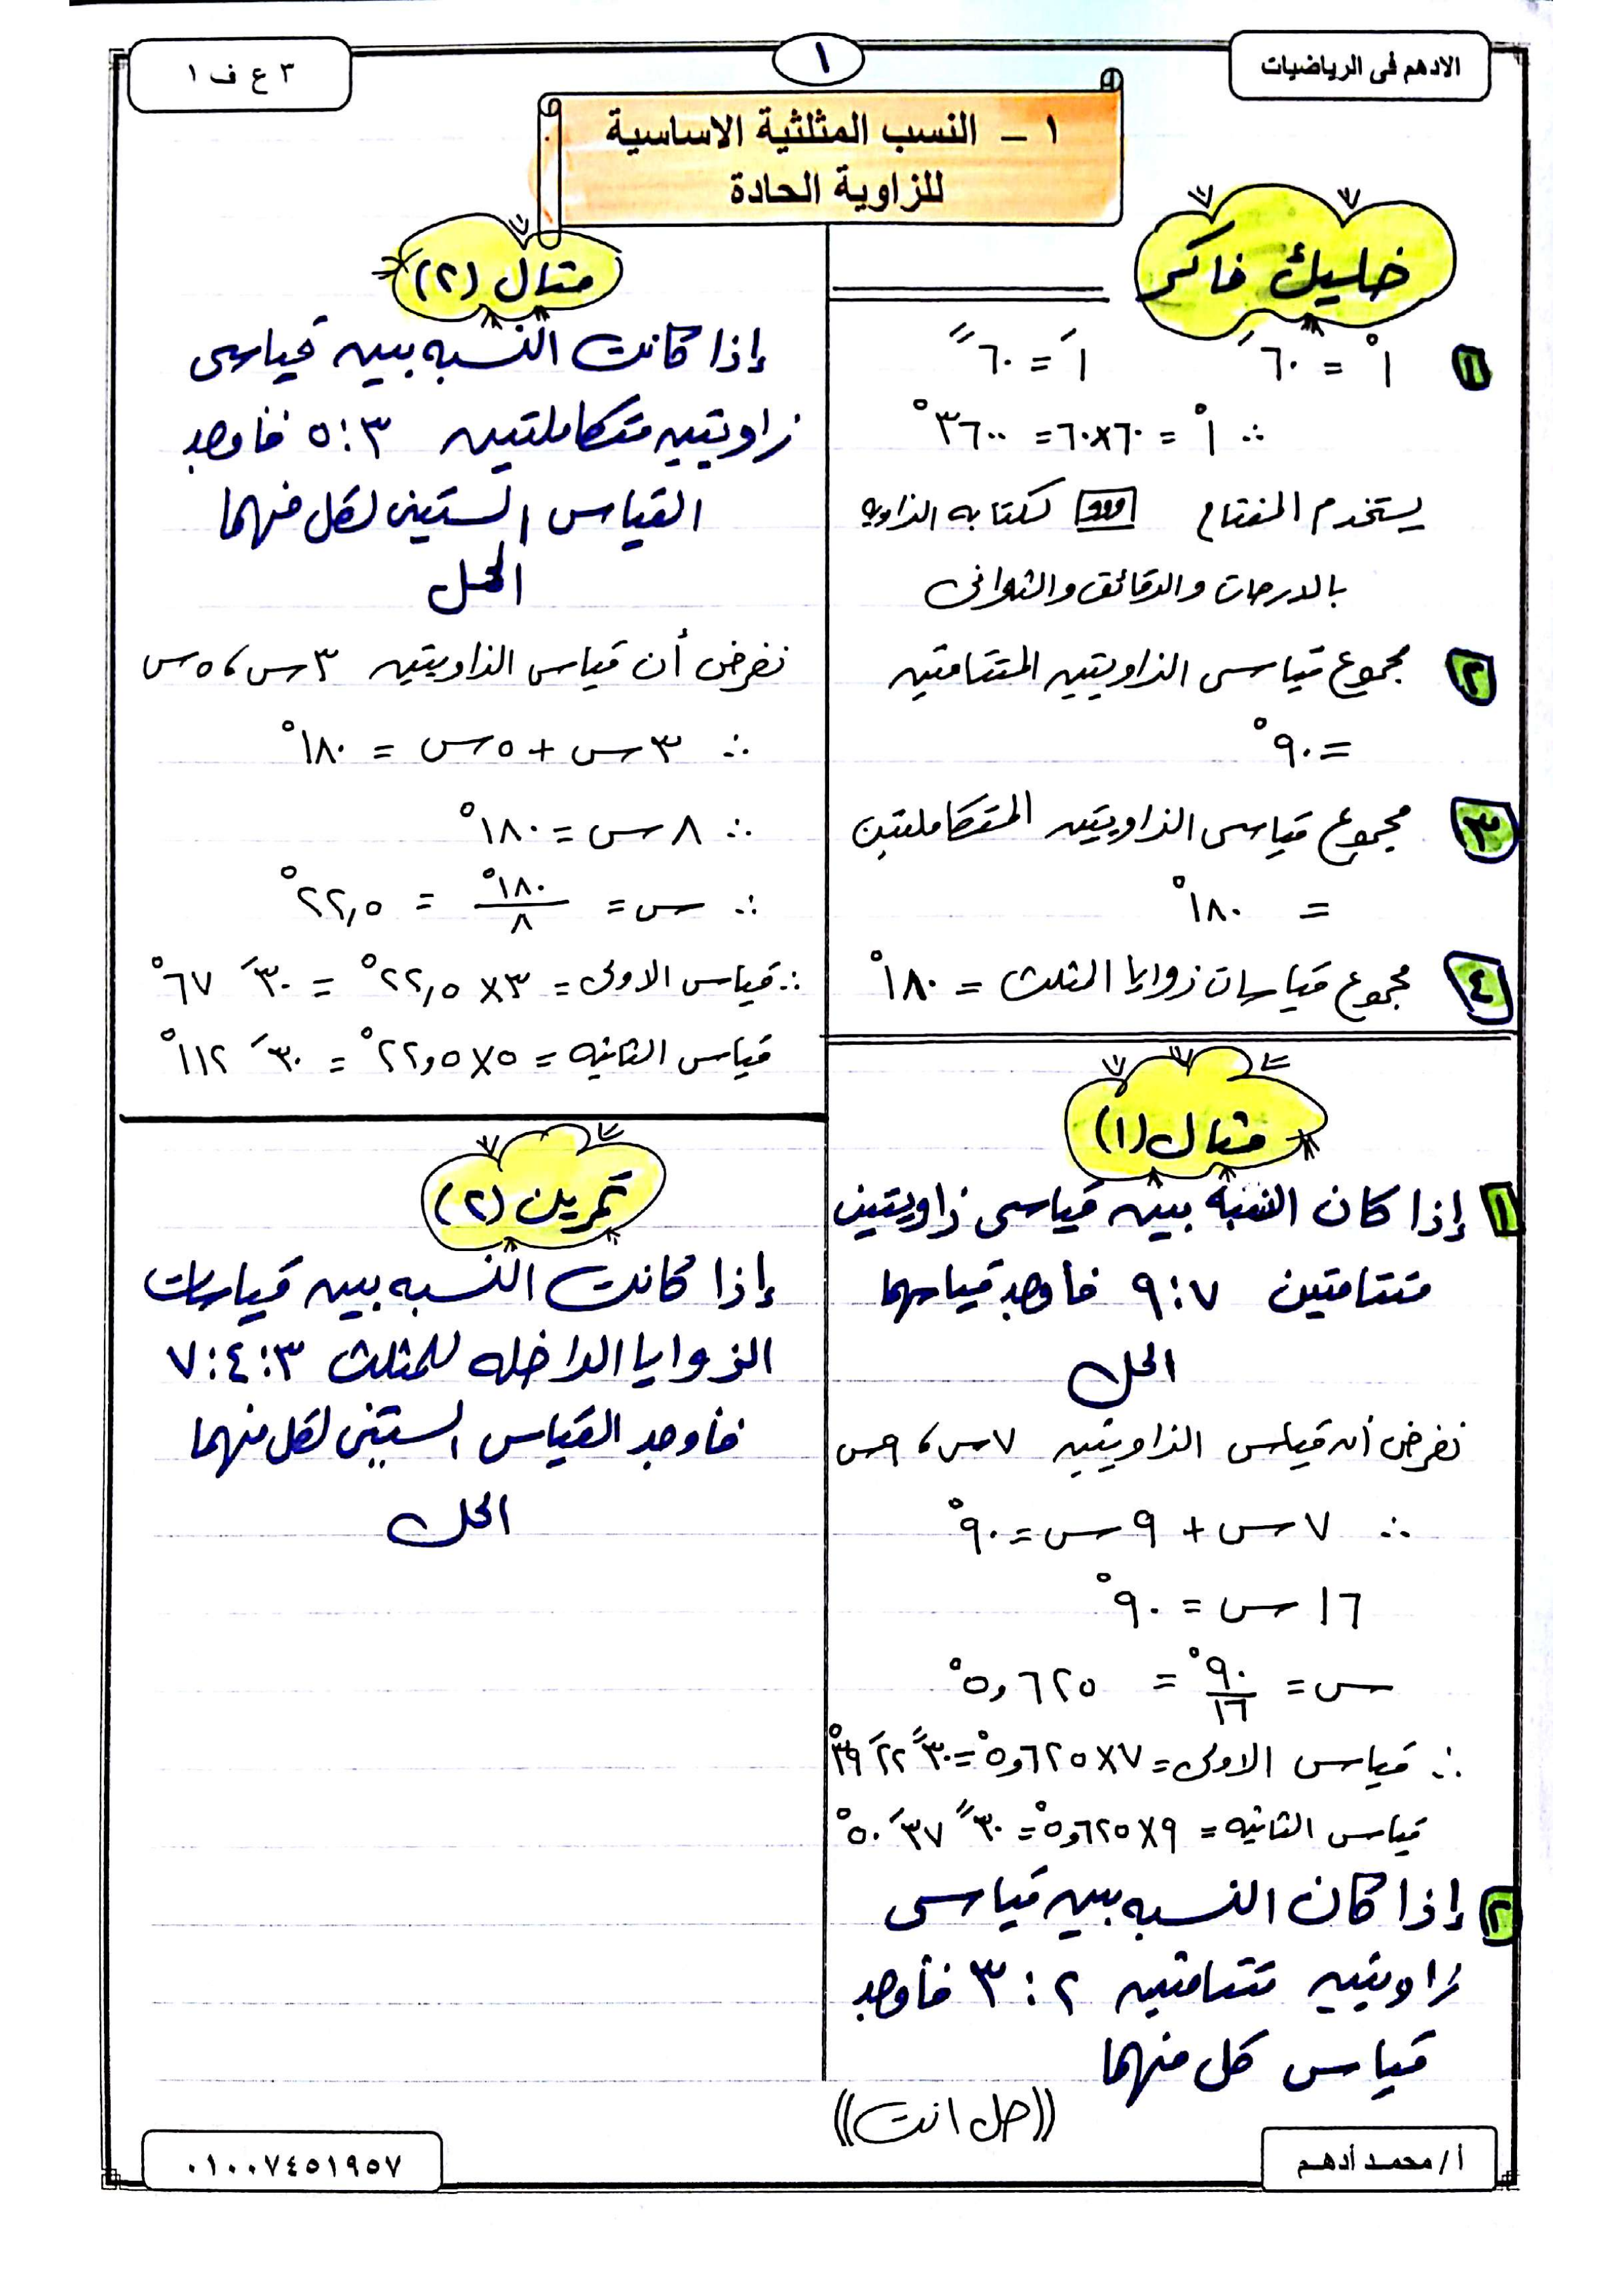 الادهم فى الرياضيات
١
٣ ع ف ١
١ - النسب المثلثية الاساسية
للزاوية الحادة
خليك فاكر
١ ١° = ٦٠َ ١َ = ٦٠ً
∴ ١° = ٦٠×٦٠ = ٣٦٠٠°
يستخدم المفتاح ,,,° لكتابه الزاويه
بالدرجات والدقائق والثوانى
٢ مجموع قياسى الزاويتين المتتامتين
= ٩٠°
٣ مجموع قياسى الزاويتين المتكاملتين
= ١٨٠°
٤ مجموع قياسات زوايا المثلث = ١٨٠°
مثال (١)
١ إذا كان النسبة بين قياسى زاويتين
متتامتين ٧:٩ فأوجد قياسهما
الحل
نفرض أن قياس الزاويتين ٧س، ٩س
∴ ٧س + ٩س = ٩٠°
١٦س = ٩٠°
س = ٩٠°/١٦ = ٥,٦٢٥°
∴ قياس الاولى = ٧×٥,٦٢٥° = ٣٠ً ٢٢َ ٣٩°
قياس الثانيه = ٩×٥,٦٢٥° = ٣٠ً ٣٧َ ٥٠°
٢ إذا كان النسبه بين قياسى
زاويتين متتامتين ٢:٣ فأوجد
قياس كل منهما
((حل انت))
مثال (٢)
إذا كانت النسبه بين قياسى
زاويتين متكاملتين ٣:٥ فاوجد
القياس الستينى لكل منهما
الحل
نفرض أن قياس الزاويتين ٣س، ٥س
∴ ٣س + ٥س = ١٨٠°
∴ ٨س = ١٨٠°
∴ س = ١٨٠°/٨ = ٢٢,٥°
∴ قياس الاولى = ٣×٢٢,٥° = ٣٠َ ٦٧°
قياس الثانيه = ٥×٢٢,٥° = ٣٠َ ١١٢°
تمرين (٢)
إذا كانت النسبه بين قياسات
الزوايا الداخله للمثلث ٣:٤:٧
فاوجد القياس الستينى لكل منهما
الحل
أ/ محمد أدهم
٠١٠٠٧٤٥١٩٥٧